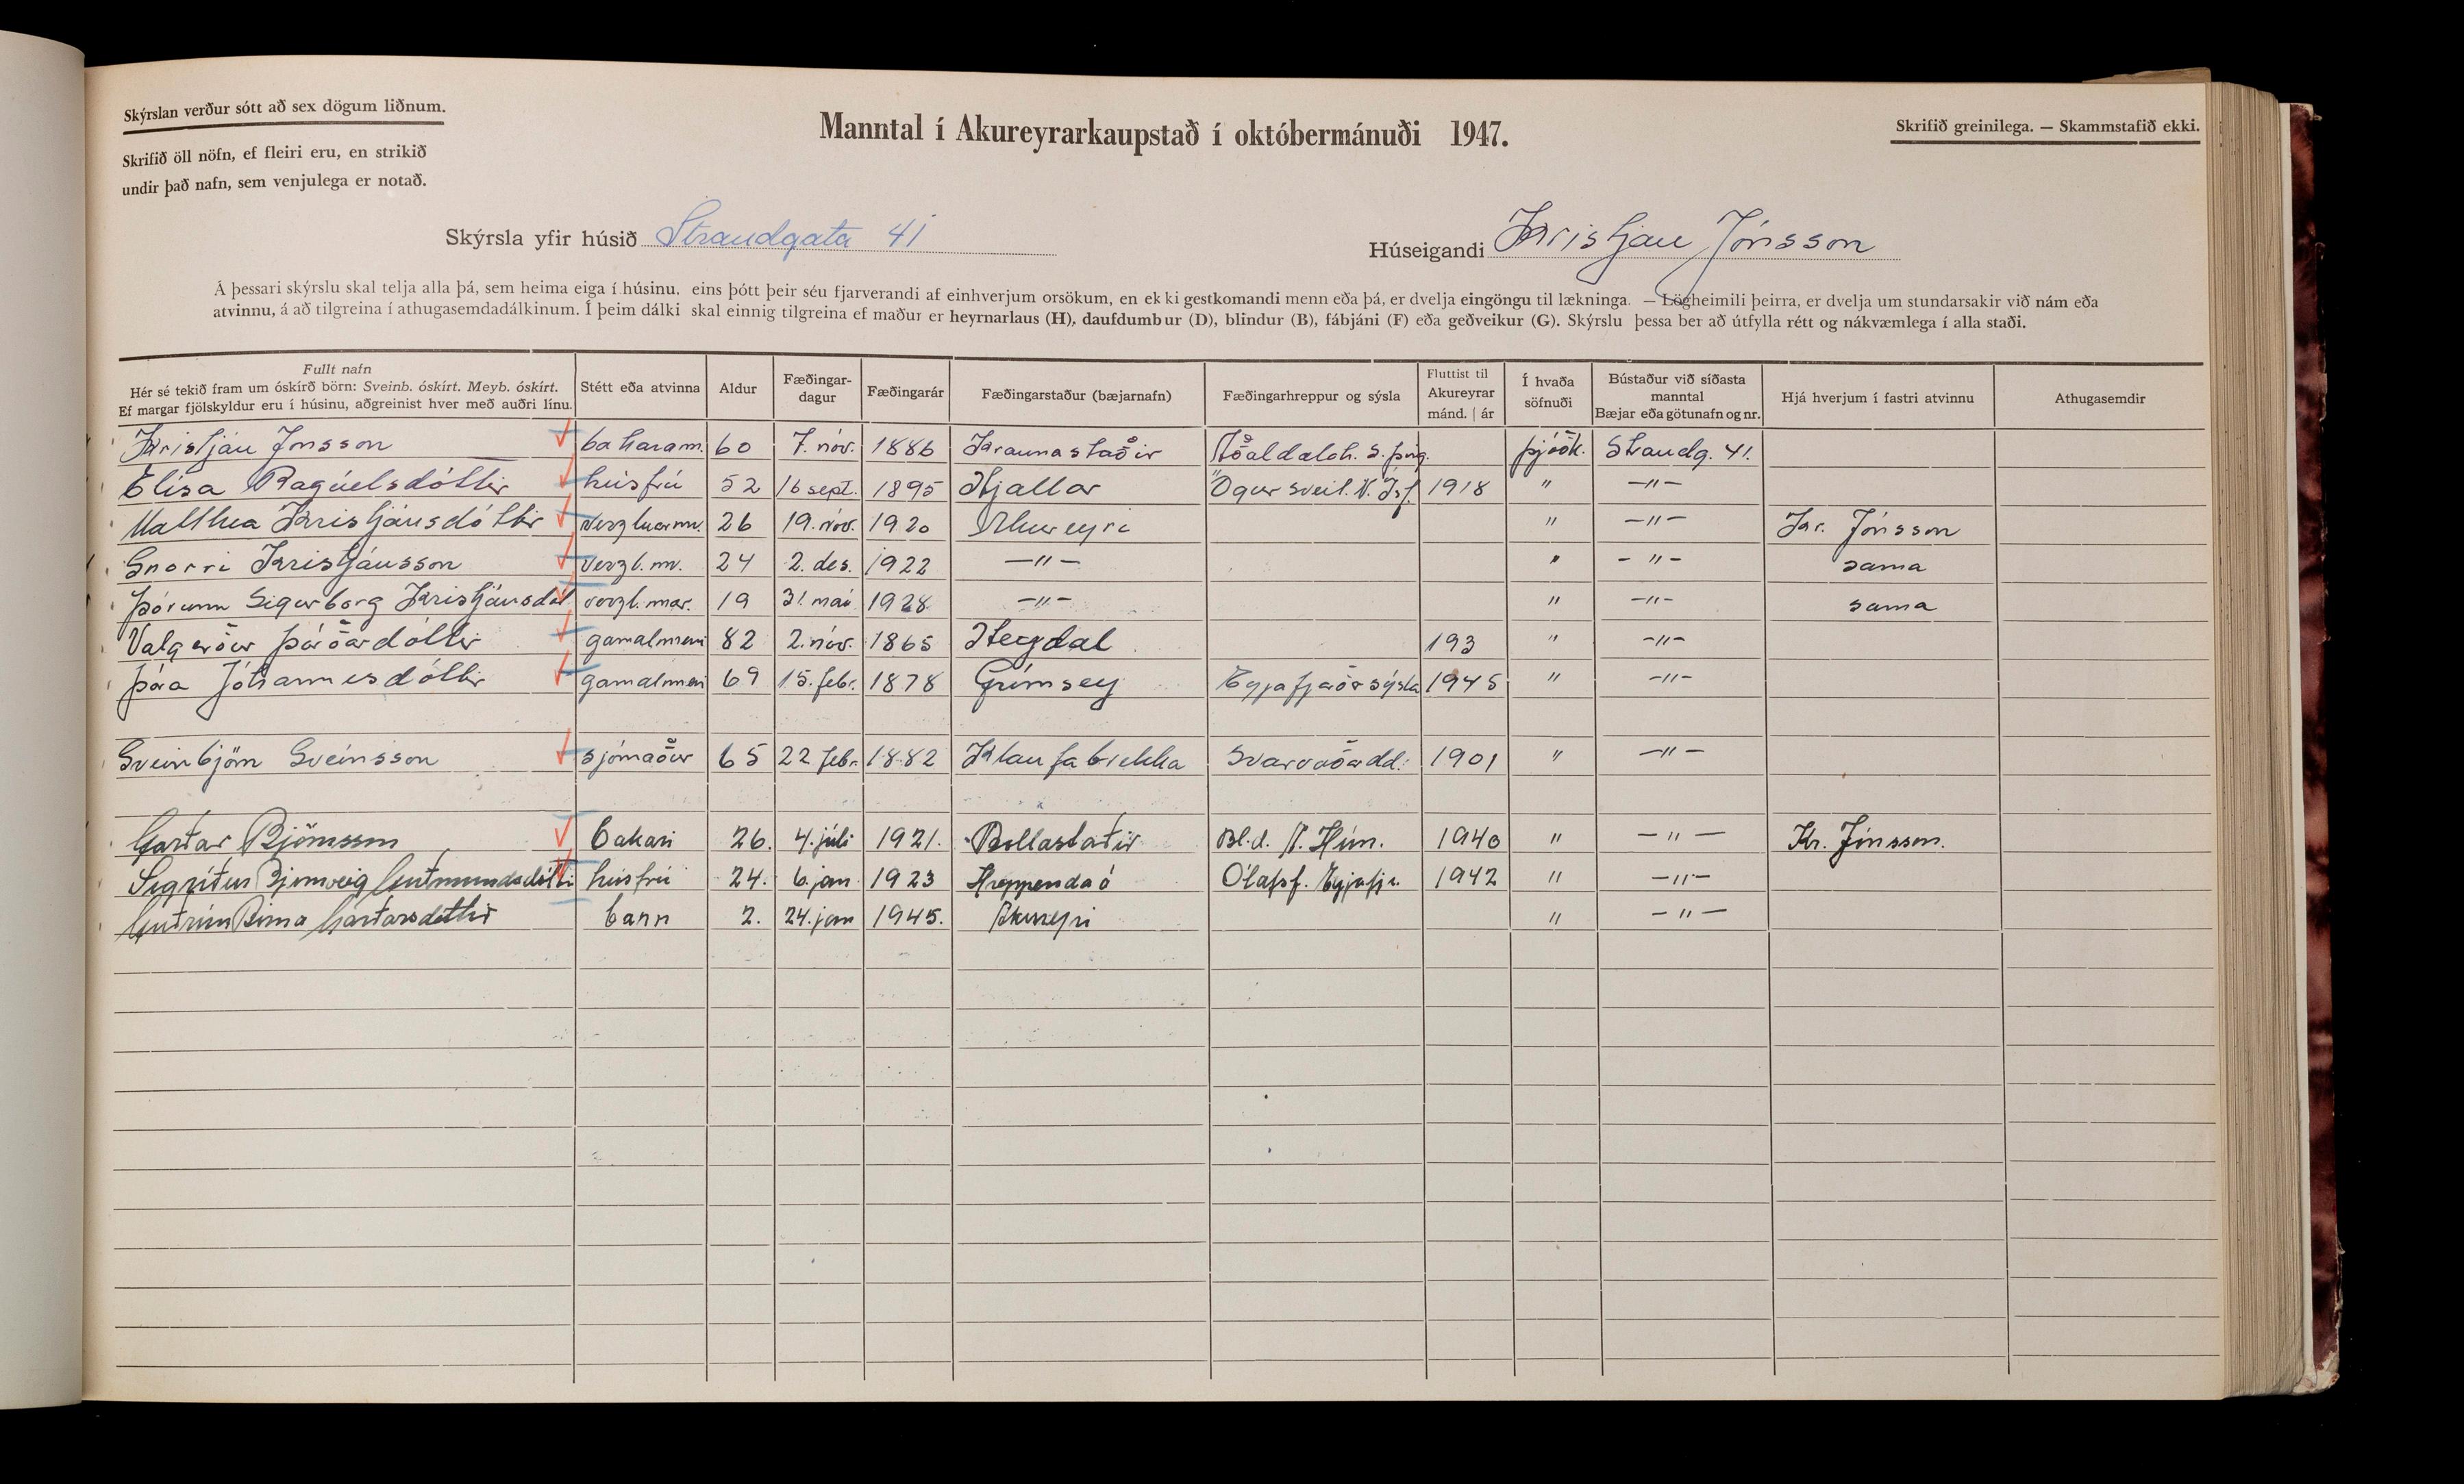 Skýrslan verður sótt að sex dögum liðnum.
Skrifið öll nöfn, ef fleiri eru, en strikið
undir það nafn, sem venjulega er notað.
Manntal í Akureyrarkaupstað í októbermánuði 1947.
Skrifið greinilega. — Skammstafið ekki.
Skýrsla yfir húsið Strandgata 41
Húseigandi Kristján Jónsson
Á þessari skýrslu skal telja alla þá, sem heima eiga í húsinu, eins þótt þeir séu fjarverandi af einhverjum orsökum, en ekki gestkomandi menn eða þá, er dvelja eingöngu til lækninga. — Lögheimili þeirra, er dvelja um stundarsakir við nám eða
atvinnu, á að tilgreina í athugasemdadálkinum. Í þeim dálki skal einnig tilgreina ef maður er heyrnarlaus (H), daufdumbur (D), blindur (B), fábjáni (F) eða geðveikur (G). Skýrslu þessa ber að útfylla rétt og nákvæmlega í alla staði.
Fullt nafn
Hér sé tekið fram um óskírð börn: Sveinb. óskírt. Meyb. óskírt.
Ef margar fjölskyldur eru í húsinu, aðgreinist hver með auðri línu.
Stétt eða atvinna
Aldur
Fæðingar-
dagur
Fæðingarár
Fæðingarstaður (bæjarnafn)
Fæðingarhreppur og sýsla
Fluttist til
Akureyrar
mánd. | ár
Í hvaða
söfnuði
Bústaður við síðasta
manntal
Bæjar eða götunafn og nr.
Hjá hverjum í fastri atvinnu
Athugasemdir
Kristján Jónsson bakaram. 60 7. nóv. 1886 Hraunastaðir Aðaldælah. S. Þing. þjóðk. Strandg. 41.
Elísa Ragúelsdóttir húsfrú 52 16 sept. 1895 Hjallar Ögursveit. N. Ísf. 1918 " —"—
Matthea Kristjánsdóttir verzlunarm. 26 19. nóv. 1920 Akureyri " —"— Kr. Jónsson
Snorri Kristjánsson verzl.m. 24 2. des. 1922 —"— " —"— sama
Þórunn Sigurborg Kristjánsdót verzl.mær. 19 31. maí 1928 —"— " —"— sama
Valgerður Þórðardóttir gamalmenni 82 2. nóv. 1865 Hegdal 193 " —"—
Þóra Jóhannesdóttir gamalmeni 69 15. febr. 1878 Grímsey Eyjafjarðarsýsla 1945 " —"—
Sveinbjörn Sveinsson sjómaður 65 22 febr. 1882 Klaufabrekka Svarvaðardd. 1901 " —"—
Garðar Björnsson bakari 26. 4. júlí 1921. Bollastaðir Bl.d. A. Hún. 1940 " —"— Kr. Jónsson.
Sigríður Bjarnveig Guðmundsdóttir húsfrú 24. 6. jan 1923 Hreppendaá Ólafsf. Eyjafj.s. 1942 " —"—
Guðrún Birna Garðarsdóttir barn 2. 24. jan 1945. Akureyri " —"—